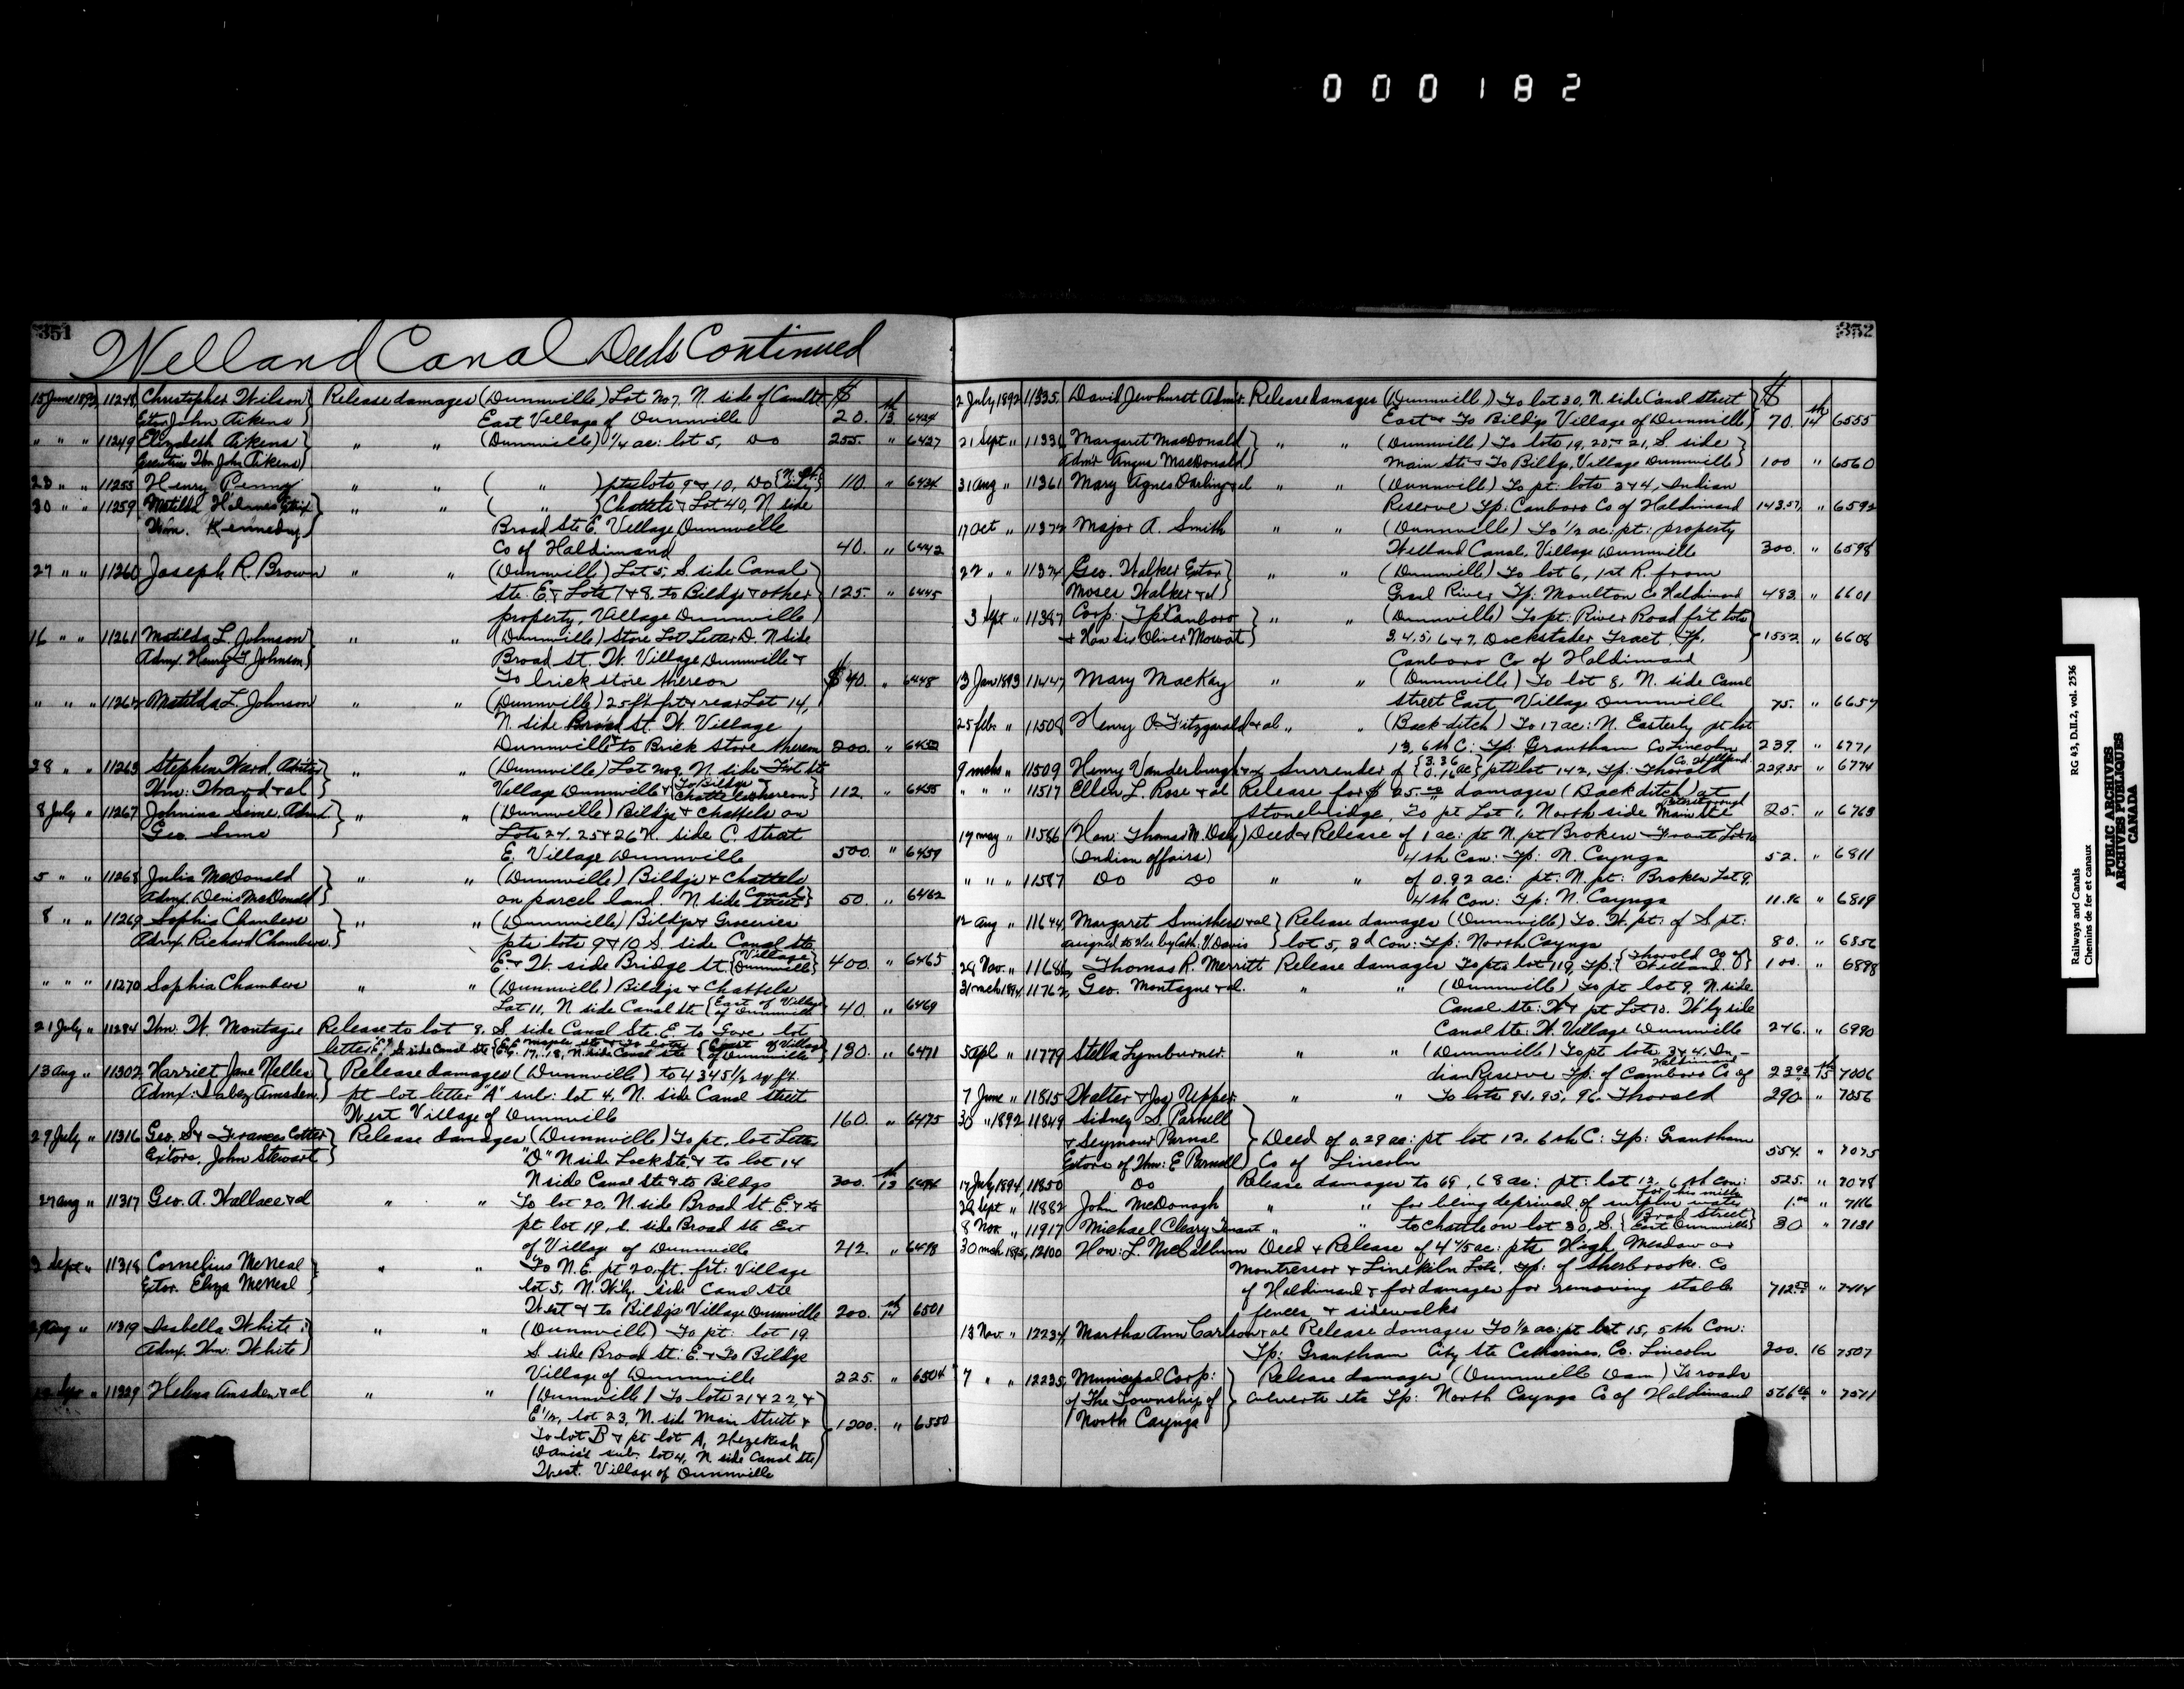 000182
351
Welland Canal Deeds Continued
15 June 1892 11248 Christopher Wilson } Release damages (Dunnville) Lot No 7. N. side of Canal St. $
Extor John Aikens East Village of Dunnville 20. 13th 6424
" " " 11249 Elizabeth Aikens } " " (Dunnville) 1/4 ac: lot 5, Do 255. " 6427
Executrix Wm John Aikens
23 " " 11255 Henry Penny " " ( " ) pts lots 9 & 10, Do 110. " 6434
30 " " 11259 Matilda Holmes Extrix } " " ( " ) Chattels & Lot 40, N side
Wm. Kennedy Broad St. E. Village Dunnville
Co of Haldimand 40. " 6442
27 " " 11260 Joseph R. Brown " " (Dunnville) Lot 5, S. side Canal
Sts. E & Lots 7 & 8. to Bildgs & other 125. " 6445
property, Village Dunnville
16 " " 11261 Matilda L. Johnson } " " (Dunnville) Store Lot Letter D. N side
Admx. Henry F Johnson Broad St. W. Village Dunnville &
To brick store thereon $40. " 6448
" " " 11264 Matilda L. Johnson " " (Dunnville) 25 ft frt & rear Lot 14,
N side Broad st. W. Village
Dunnville & to Brick Store thereon 200. " 6452
28 " " 11263 Stephen Ward, } " " (Dunnville) Lot No 9. N. side
Wm: Ward & al Village Dunnville & To Bildgs Chattels thereon 112. " 6455
8 July " 11267 Johnina Sime, Admx } " " (Dunnville) Bildgs & Chattels on
Geo. Sime Lots 24. 25 & 26 N. side C. Street
E. Village Dunnville 500. " 6459
5 " " 11268 Julia McDonald } " " (Dunnville) Bildgs & Chattels
Admx. Denis McDonald on parcel land. N. side Canal Street 50. " 6462
8 " " 11269 Sophia Chambers } " " (Dunnville) Bildgs & Groceries
Admx. Richard Chambers. pts lots 9 & 10 S. side Canal Sts
E. & W. side Bridge St. {Village Dunnville} 400. " 6465
" " " 11270 Sophia Chambers " " (Dunnville) Bildgs & Chattels
Lot 11, N side Canal St {East of Village of Dunnville 40. " 6469
21 July " 11284 Wm. W. Montague Release to lot 9. S. side Canal Sts. E. to Gore lot
letter S. side Canal Sts 17. 18, N. side Canal Sts {East of Village of Dunnville} 130. " 6471
13 Aug " 11302 Harriet Jane Nelles } Release damages (Dunnville) to 4345 1/2 sq ft.
Admx: Amsden. pt lot letter "A" sub: lot 4. N. side Canal Street
West Village of Dunnville 160. " 6475
29 July " 11316 Geo. S & Frances Cotter } Release damages (Dunnville) To pt. lot Letter
Extors. John Stewart "D" N side Lock Sts & to lot 14
N side Canal Sts & to Bildgs 300. 13th
27 Aug " 11317 Geo. A. Wallace & al " " To lot 20, N. side Broad St. E. & to
pt lot 19, S. side Broad Sts East
of Village of Dunnville 212. " 6498
2 Sept " 11318 Cornelius McNeal } " " To N. E. pt 20 ft. frt: Village
Extor. Eliza McNeal lot 5, N. W'ly. side Canal Sts
West & to Bildgs Village Dunnville 200. 14th 6501
Aug " 11319 Isabella White } " " (Dunnville) To pt: lot 19
Admx. Wm: White S. side Broad St: E. & To Bildgs
Village of Dunnville 225. " 6504
" 11329 Helena Amsden & al " " (Dunnville) To lots 21 & 22, &
E 1/2, lot 23, N. side Main Street &
To lot B & pt lot A, Hezekiah 1200. " 6550
Davis's sub: lot 4, N side Canal Sts
West. Village of Dunnville
352
2 July 1892 11335 David Jewhurst Admr. Release damages (Dunnville) To lot 30, N. side Canal Street $
East & To Bildgs Village of Dunnville 70. 14th 6555
21 Sept " 11336 Margaret MacDonald } " " (Dunnville) To lots 19, 20 & 21, S. side
Adm'x Angus MacDonald Main Sts & To Bildgs, Village Dunnville 100 " 6560
31 Aug " 11361 Mary Agnes Darling & al " " (Dunnville) To pt: lots 3 & 4, Indian
Reserve Tp: Canboro Co of Haldimand 143.57 " 6592
17 Oct " 11372 Major A. Smith " " (Dunnville) To 1/2 ac: pt: property
Welland Canal, Village Dunnville 300. " 6598
22 " " 11374 Geo. Walker Extor } " " (Dunnville) To lot 6, 1st R. from
Moses Walker & al Grand River Tp: Moulton Co Haldimand 483. " 6601
3 Sept " 11387 Corp: Tp: Canboro } " " (Dunnville) To pt: River Road frt lots
& Hon Sir Oliver Mowat 3, 4, 5, 6 & 7, Dockstader Tract, Tp, 1552. " 6608
Canboro Co of Haldimand
13 Jan 1893 11447 Mary MacKay " " (Dunnville) To lot 8, N. side Canal
Street East, Village Dunnville 75. " 6657
25 Feb " 11508 Henry O. Fitzgerald & al " " (Back-ditch) To 17 ac: N. Easterly pt lot
13, 6th C: Tp: Grantham Co Lincoln 239. " 6771
9 mch " 11509 Henry Vanderburgh & ux Surrender of {3.36 0.16 ac} pts lot 142, Tp: Thorold Co. Welland. 229.35 " 6774
" " " 11517 Ellen L. Rose & al Release for $25.00 damages (Back ditch) at
Stonebridge, To pt Lot North side Main Sts 25. " 6763
17 May " 11586 Hon: Thomas M. Daly } Deed & Release of 1 ac: pt N. pt Broken Front Lot 10
(Indian affairs) 4th Con: Tp: N. Cayuga 52. " 6811
" " " 11587 Do Do " " of 0.92 ac: pt: N. pt: Broken Lot 9.
4th Con: Tp: N. Cayuga 11.96 " 6819
12 Aug " 11644 Margaret Smithers & al } Release damages (Dunnville) To. W. pt: of S pt:
assigned to Her by Cath: V. Davis lot 5, 3d Con: Tp: North Cayuga 80. " 6856
28 Nov. " 11686 Thomas R. Merritt Release damages To pts lot 119, Tp: {Thorold Co of Welland} 100. " 6898
31 mch 1894 11762 Geo. Montague & al. " " (Dunnville) To pt lot 9, N. side
Canal Sts: W & pt Lot 10. W'ly side
Canal Sts: W. Village Dunnville 246. " 6990
5 Apl " 11779 Stella Lymburner. " " (Dunnville) To pt lots 3 & 4, In-
dian Reserve Tp: of Canboro Co of Haldimand 15th 7006
7 June " 11815 Walter & Jos Upper " " To lots 94, 95, 96. Thorold 290. " 7056
30 " 1892 11849 Sidney S. Parnell }
& Seymour Parnal } Deed of 0.29 ac: pt lot 12, 6th C: Tp: Grantham
Extors of Wm: E Parnell Co of Lincoln 554. " 7075
17 July 1894 11850 Do Release damages to 69, 68 ac: pt: lot 12, 6th Con: 525. " 7078
29 Sept " 11882 John McDonagh " " for being deprived of surplus water for his mills 1.00 " 7116
8 Nov. " 11917 Michael Cleary Tenant " " to chattels on lot 30, S. {Broad Street East Dunnville} 30 " 7131
30 mch 1895 12100 Hon: L. McCallum Deed & Release of 4 4/5 ac: pts High Meadow or
Montressor & Limekiln Lots. Tp: of Sherbrooke. Co
of Haldimand & for damages for removing stable 712.50 " 7414
fences & sidewalks
13 Nov. " 12234 Martha Ann Carlson & al Release damages To 1/2 ac: pt lot 15, 5th Con:
Tp: Grantham City Sts Catharines, Co. Lincoln 200. 16 7507
7 " " 12235 Municipal Corp: } Release damages (Dunnville Dam) To roads
of The Township of } culverts etc Tp: North Cayuga Co of Haldimand " 7571
North Cayuga
Railways and Canals RG 43, D.II.2, vol. 2536
Chemins de fer et canaux
PUBLIC ARCHIVES
ARCHIVES PUBLIQUES
CANADA